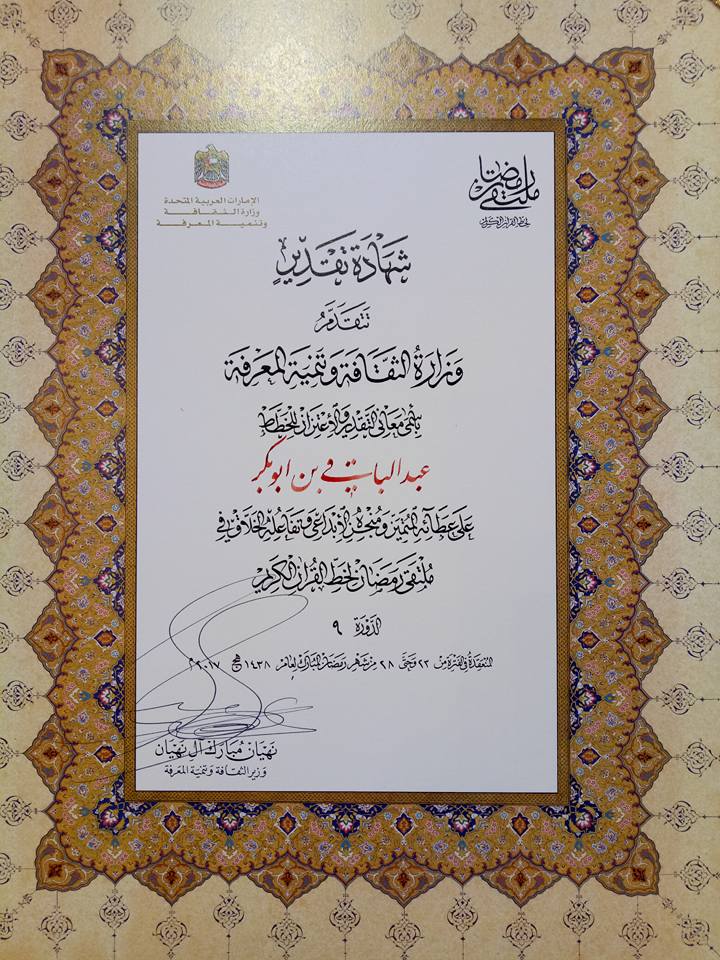 الإمارات العربية المتحدة
وزارة الثقافة
وتنمية المعرفة
ملتقى رمضان
لخط القرآن الكريم
شَهَادَة تَقْدِيرٍ
تتقدّمُ
وَزَارَةُ الثّقَافَة وَتَنمِيَة المَعرفَة
بأسمى معاني التقدير والاعتزاز للخطاط
عبد الباقي بن ابوبكر
على عطائه المتميز ومنجزه الأبداعي وتفاعله الخلاق في
ملتقى رمضان لخط القران الكريم
الدّورَة ٩
المنعقدة في الفترة من ٢٣ وحتى ٢٨ من شهر رمضان المبارك لعام ١٤٣٨ هج ٢٠١٧م
نهيَان مُبَارَك ال نهيَان
وَزير الثقافة وتنميَة المعَرفة